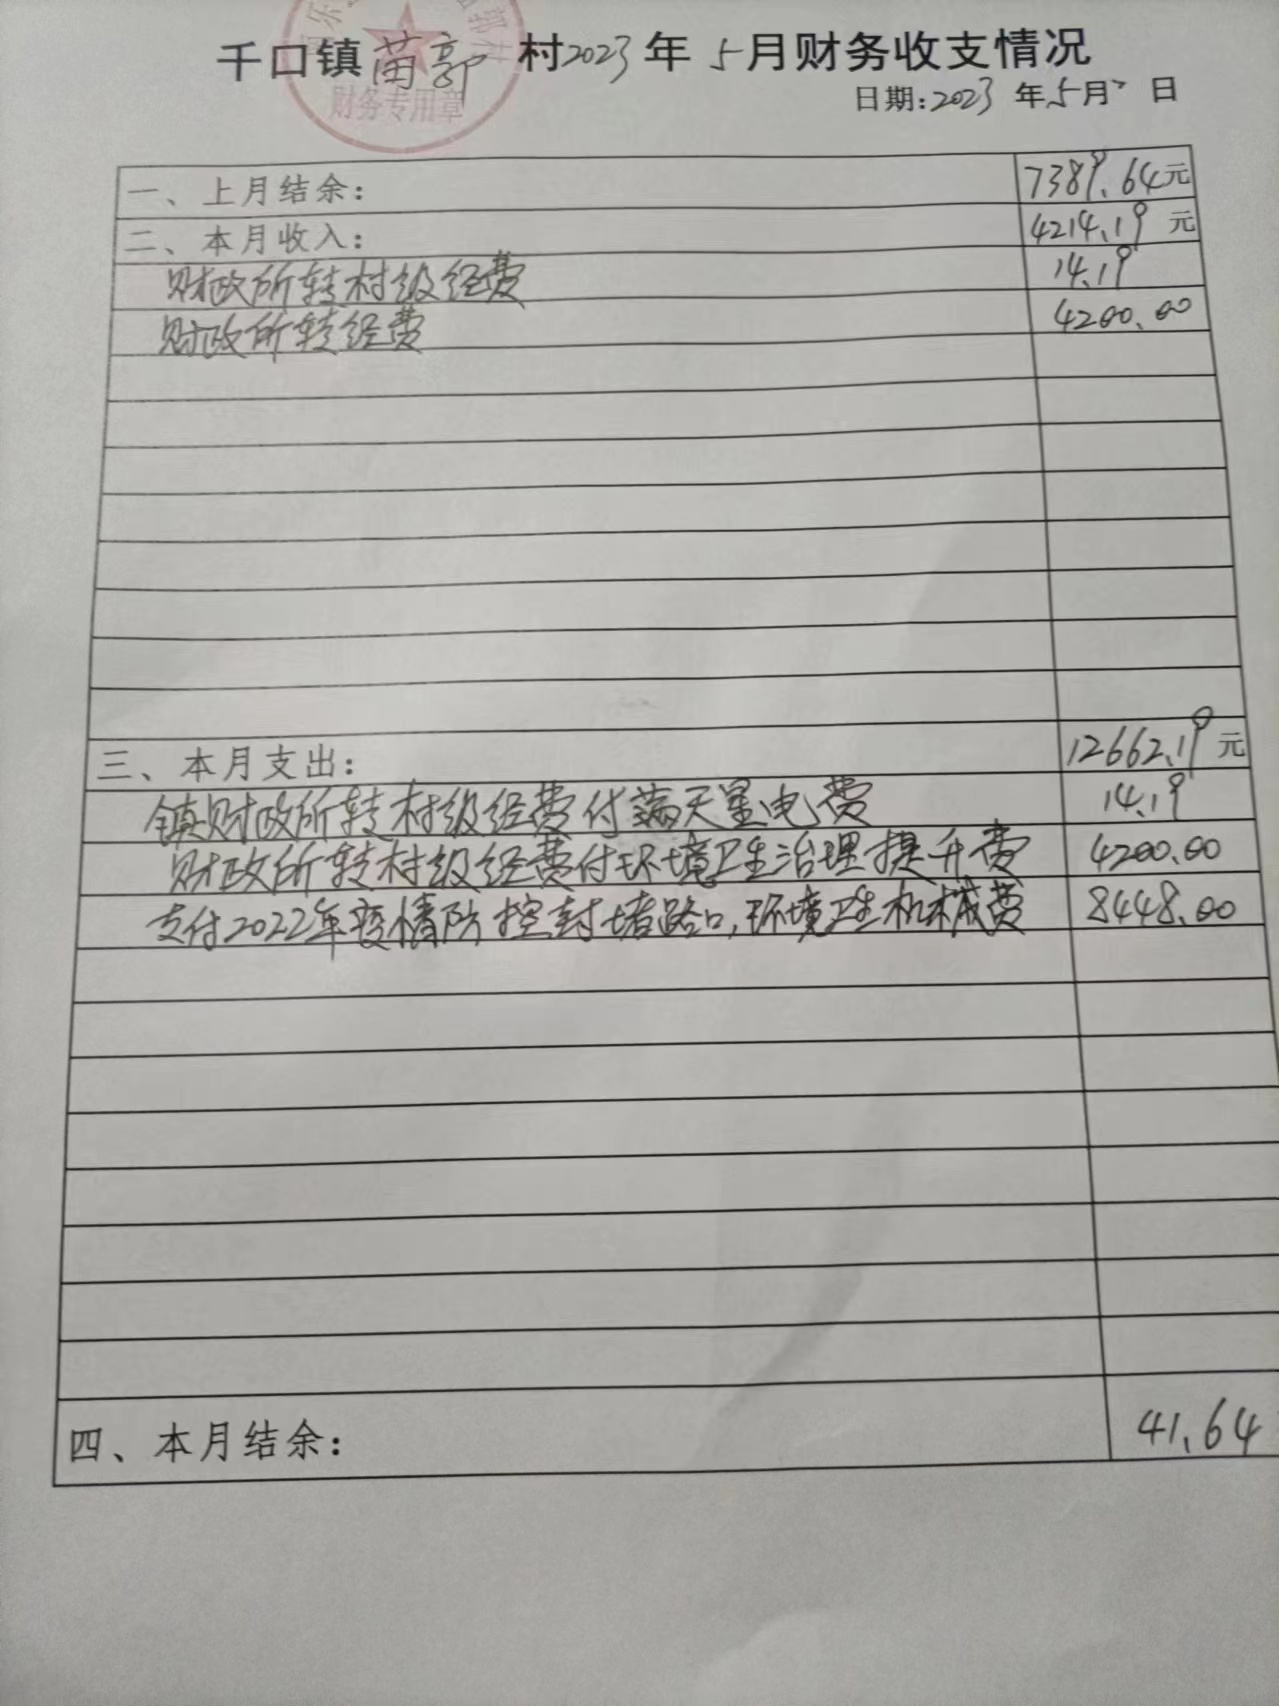 千口镇苗郭村2023年5月财务收支情况
财务专用章
日期:2023年5月 日
一、上月结余: 7389.64元
二、本月收入: 4214.19元
财政所转村级经费 14.19
财政所转经费 4200.00
三、本月支出: 12662.19元
镇财政所转村级经费付满天星电费 14.19
财政所转村级经费付环境卫生治理提升费 4200.00
支付2022年疫情防控封堵路口,环境卫生机械费 8448.00
四、本月结余: 41.64